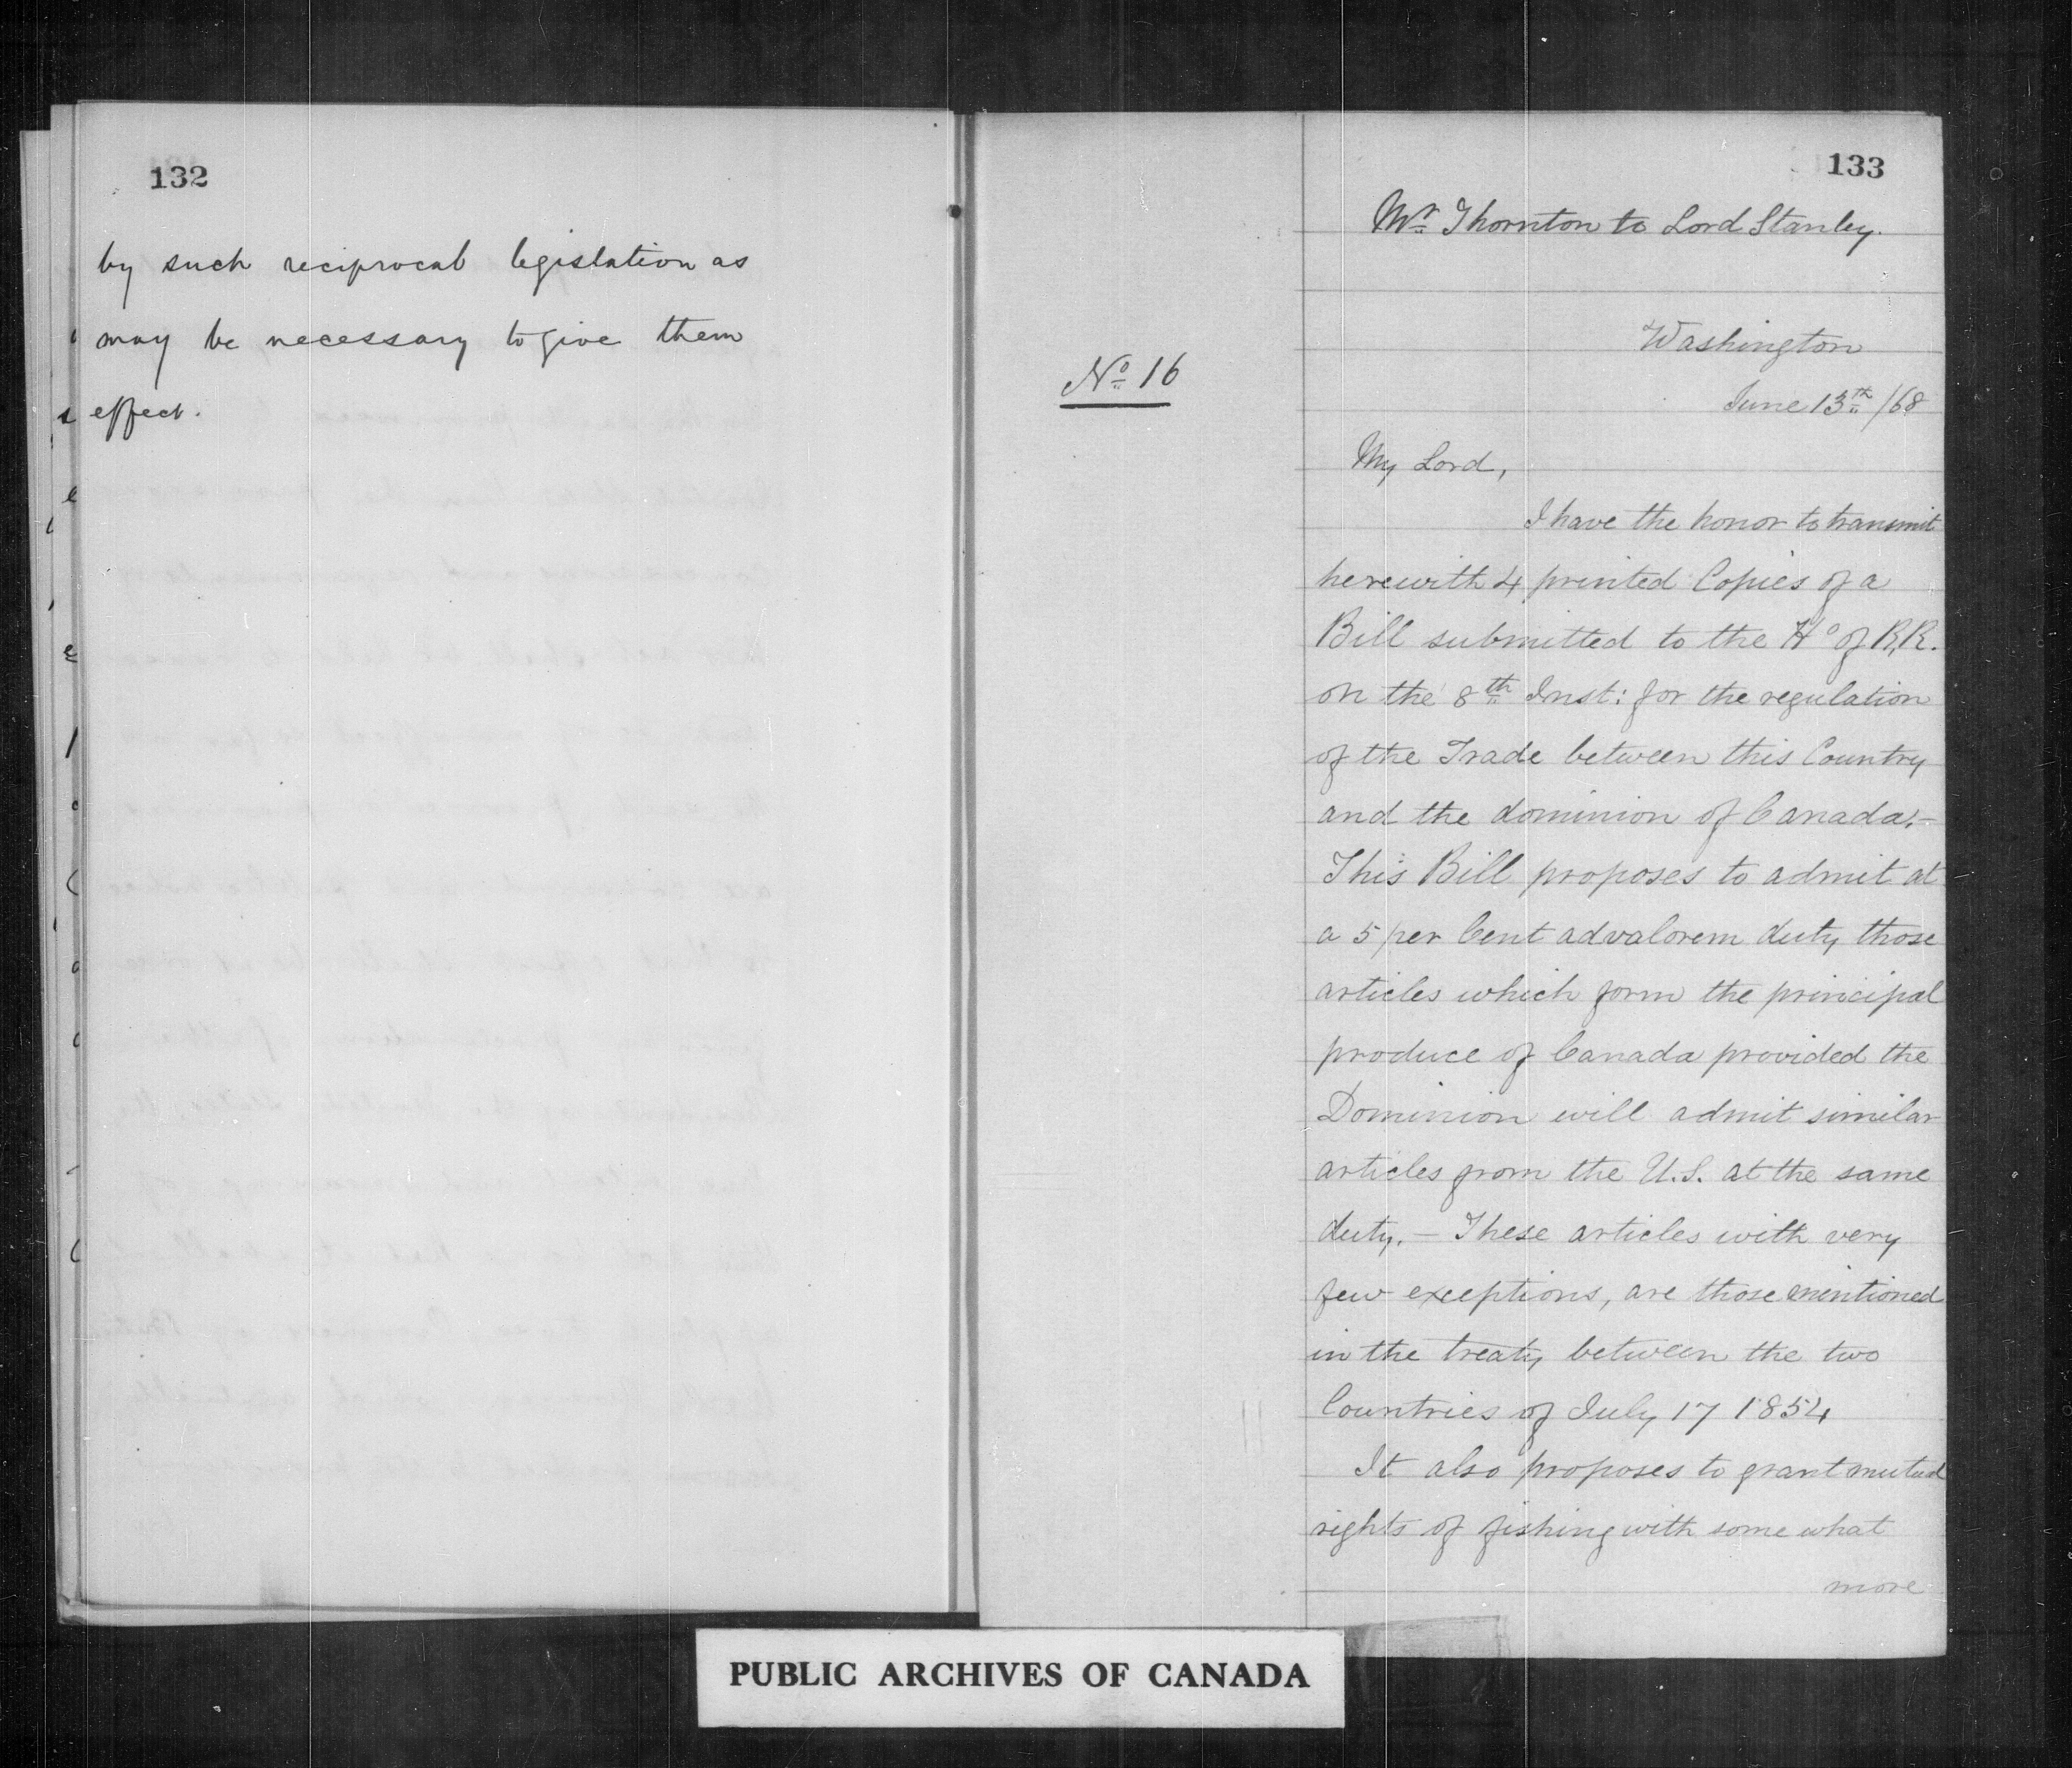 132
by such reciprocal legislation as
may be necessary to give them
effect.
133
Mr. Thornton to Lord Stanley.
No. 16
Washington
June 13th /68
My Lord,
I have the honor to transmit
herewith 4 printed Copies of a
Bill submitted to the Ho of R,R.
on the 8th Inst: for the regulation
of the Trade between this Country
and the dominion of Canada.—
This Bill proposes to admit at
a 5 per Cent advalorem duty those
articles which form the principal
produce of Canada provided the
Dominion will admit similar
articles from the U.S. at the same
duty. — These articles with very
few exceptions, are those mentioned
in the treaty between the two
Countries of July 17 1854
It also proposes to grant mutual
rights of fishing with some what
more
PUBLIC ARCHIVES OF CANADA